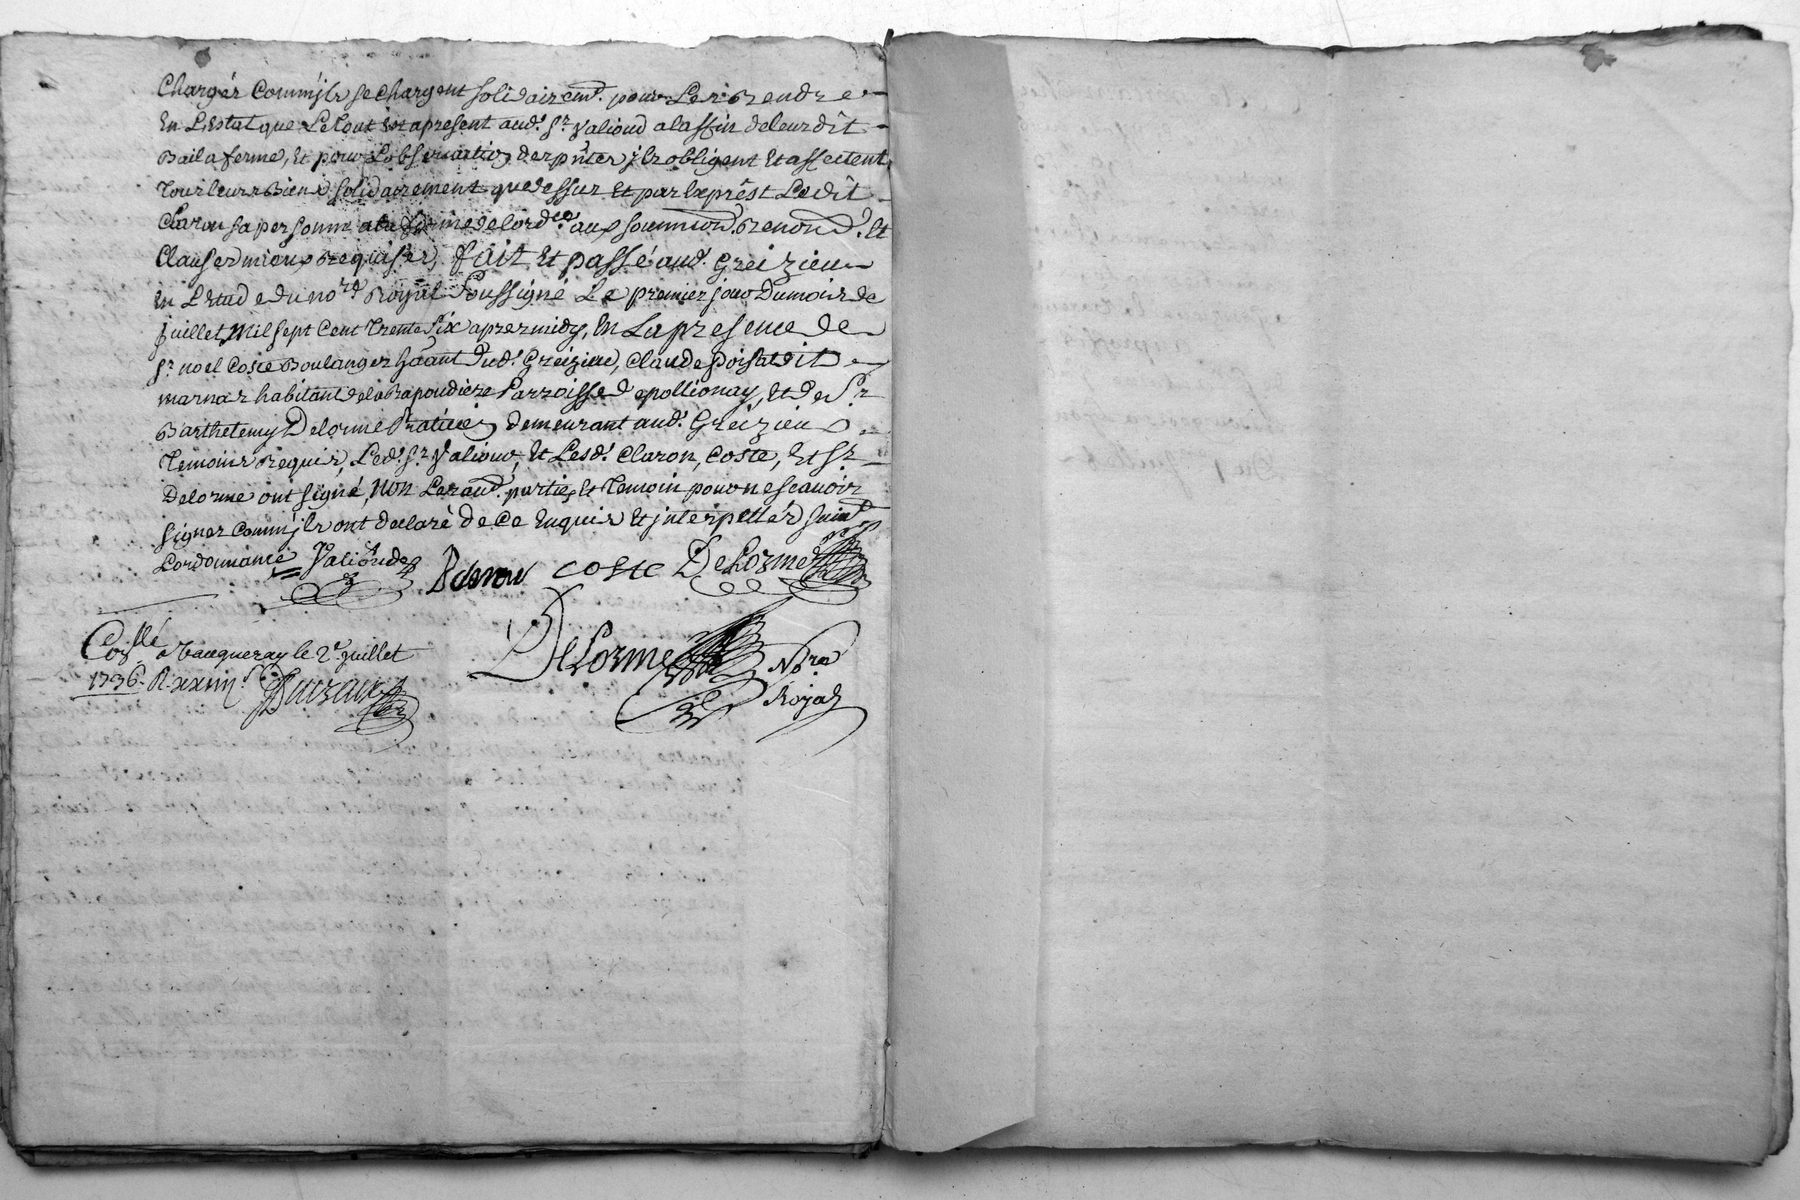 Chargér Comm'jls se chargent solidairemt. pour Les Rendre
En L'Estat que Le tout Est apresent aud. Sr. Valioud a la ffin de leur dit
Bail a ferme, Et pour L'observation des p'ntes jls obligent Et affectent
Tous leurs Biens solidairement que dessus Et par Exprêst Ledit
Claron sa personne a la forme de l'ordce. aux soumiiond. Renond. Et
Clauses mieux Requises, fait Et passé aud. Greizieu
En L'Etude du nore. Royal Soussigné Le premier jour Dumois de
juillet Mil sept Cent Trente Six apres midy, En La presence de
Sr. noel Coste Boulanger hãant dud. Greizieu, Claude poisat dit
marnas habitant de la Rapoudiere Parroisse de pollionay, Et de Sr.
Barthelemy Delorme Praticien demeurant aud. Greizieu
Temoins Requis, Led. Sr. Valioud, Et Lesd. Claron, Coste, Et Sr.
Delorme ont signé, non Les aud. parties Et Temoin pour ne scauoir
signer Comm'jls ont declaré de Ce Enquis Et jnterpellés suiut
L'ordonnance Valioude
Claron coste DeLorme
Collé a Vaugneray le 2e juillet
1736. R. xxiiii s.
DeLorme Nore
Royal